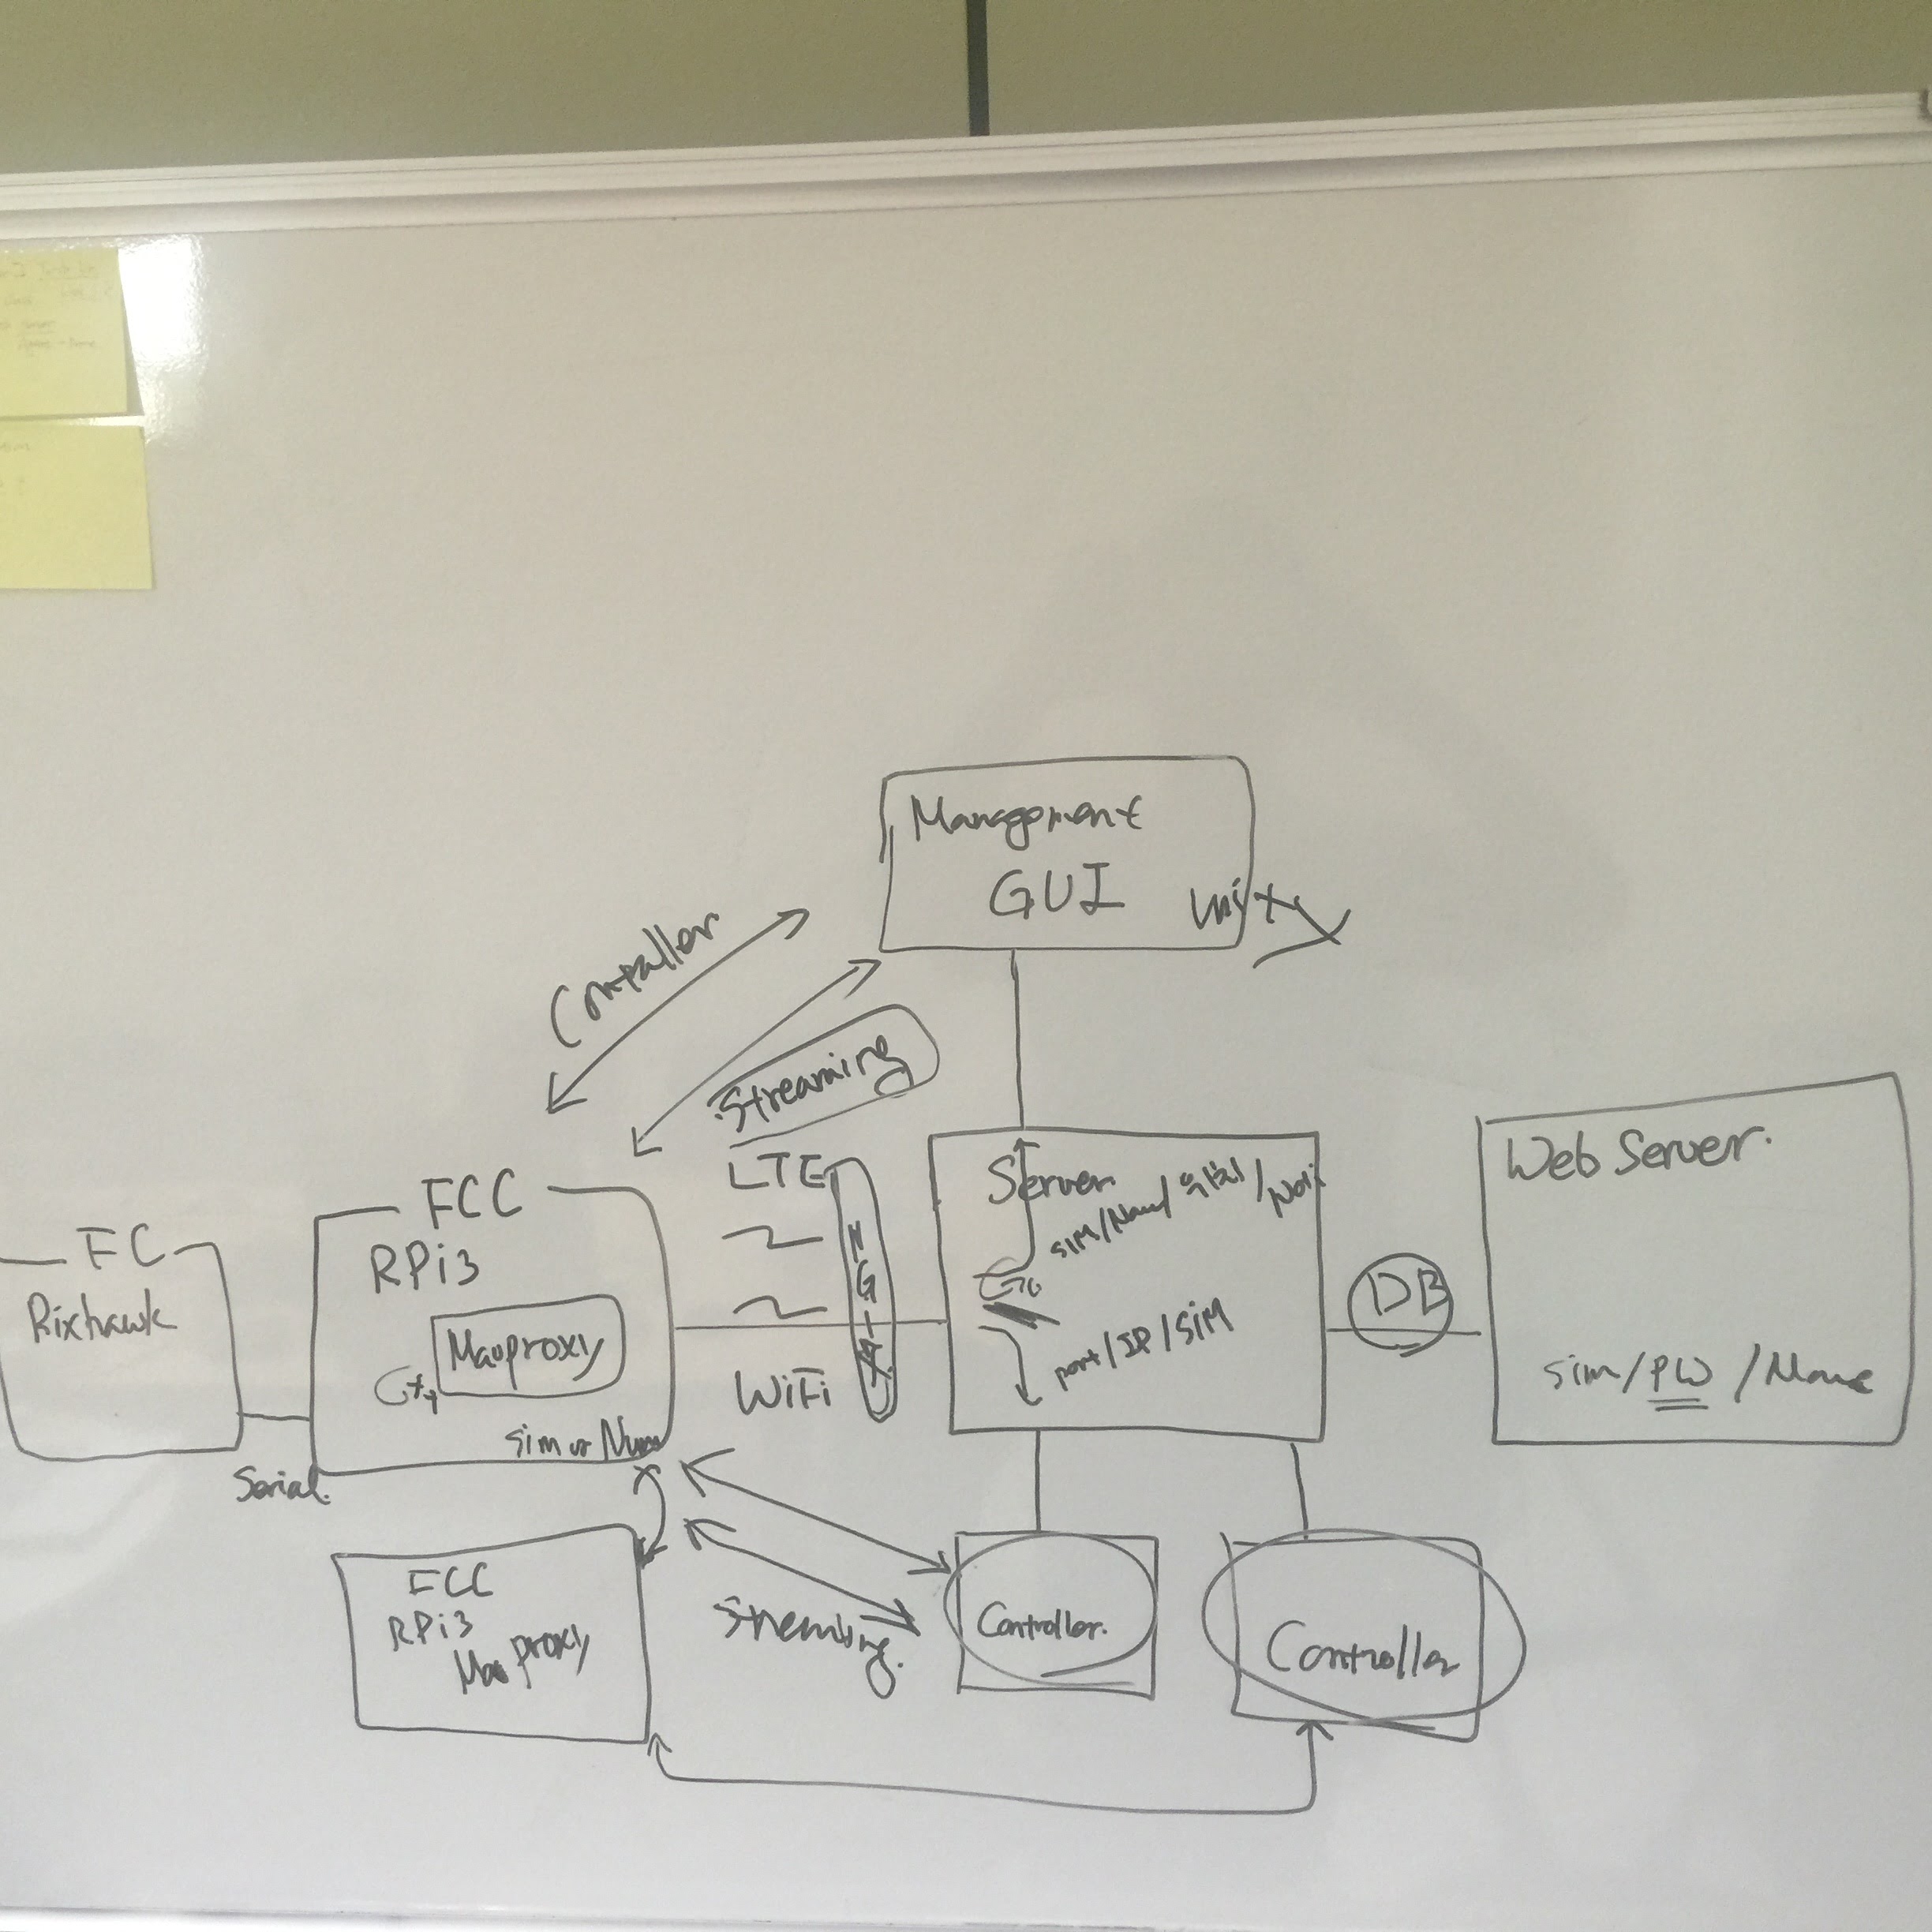 Management
GUI
Unity
Controller
Streaming
LTE
WiFi
FC
Rixhawk
Serial.
FCC
RPi3
Mavproxy
C++
sim or Num
Server
sim/Name/
port/IP/SIM
DB
Web Server.
sim/PW/Name
FCC
RPi3
Mavproxy
Streaming.
Controller.
Controller